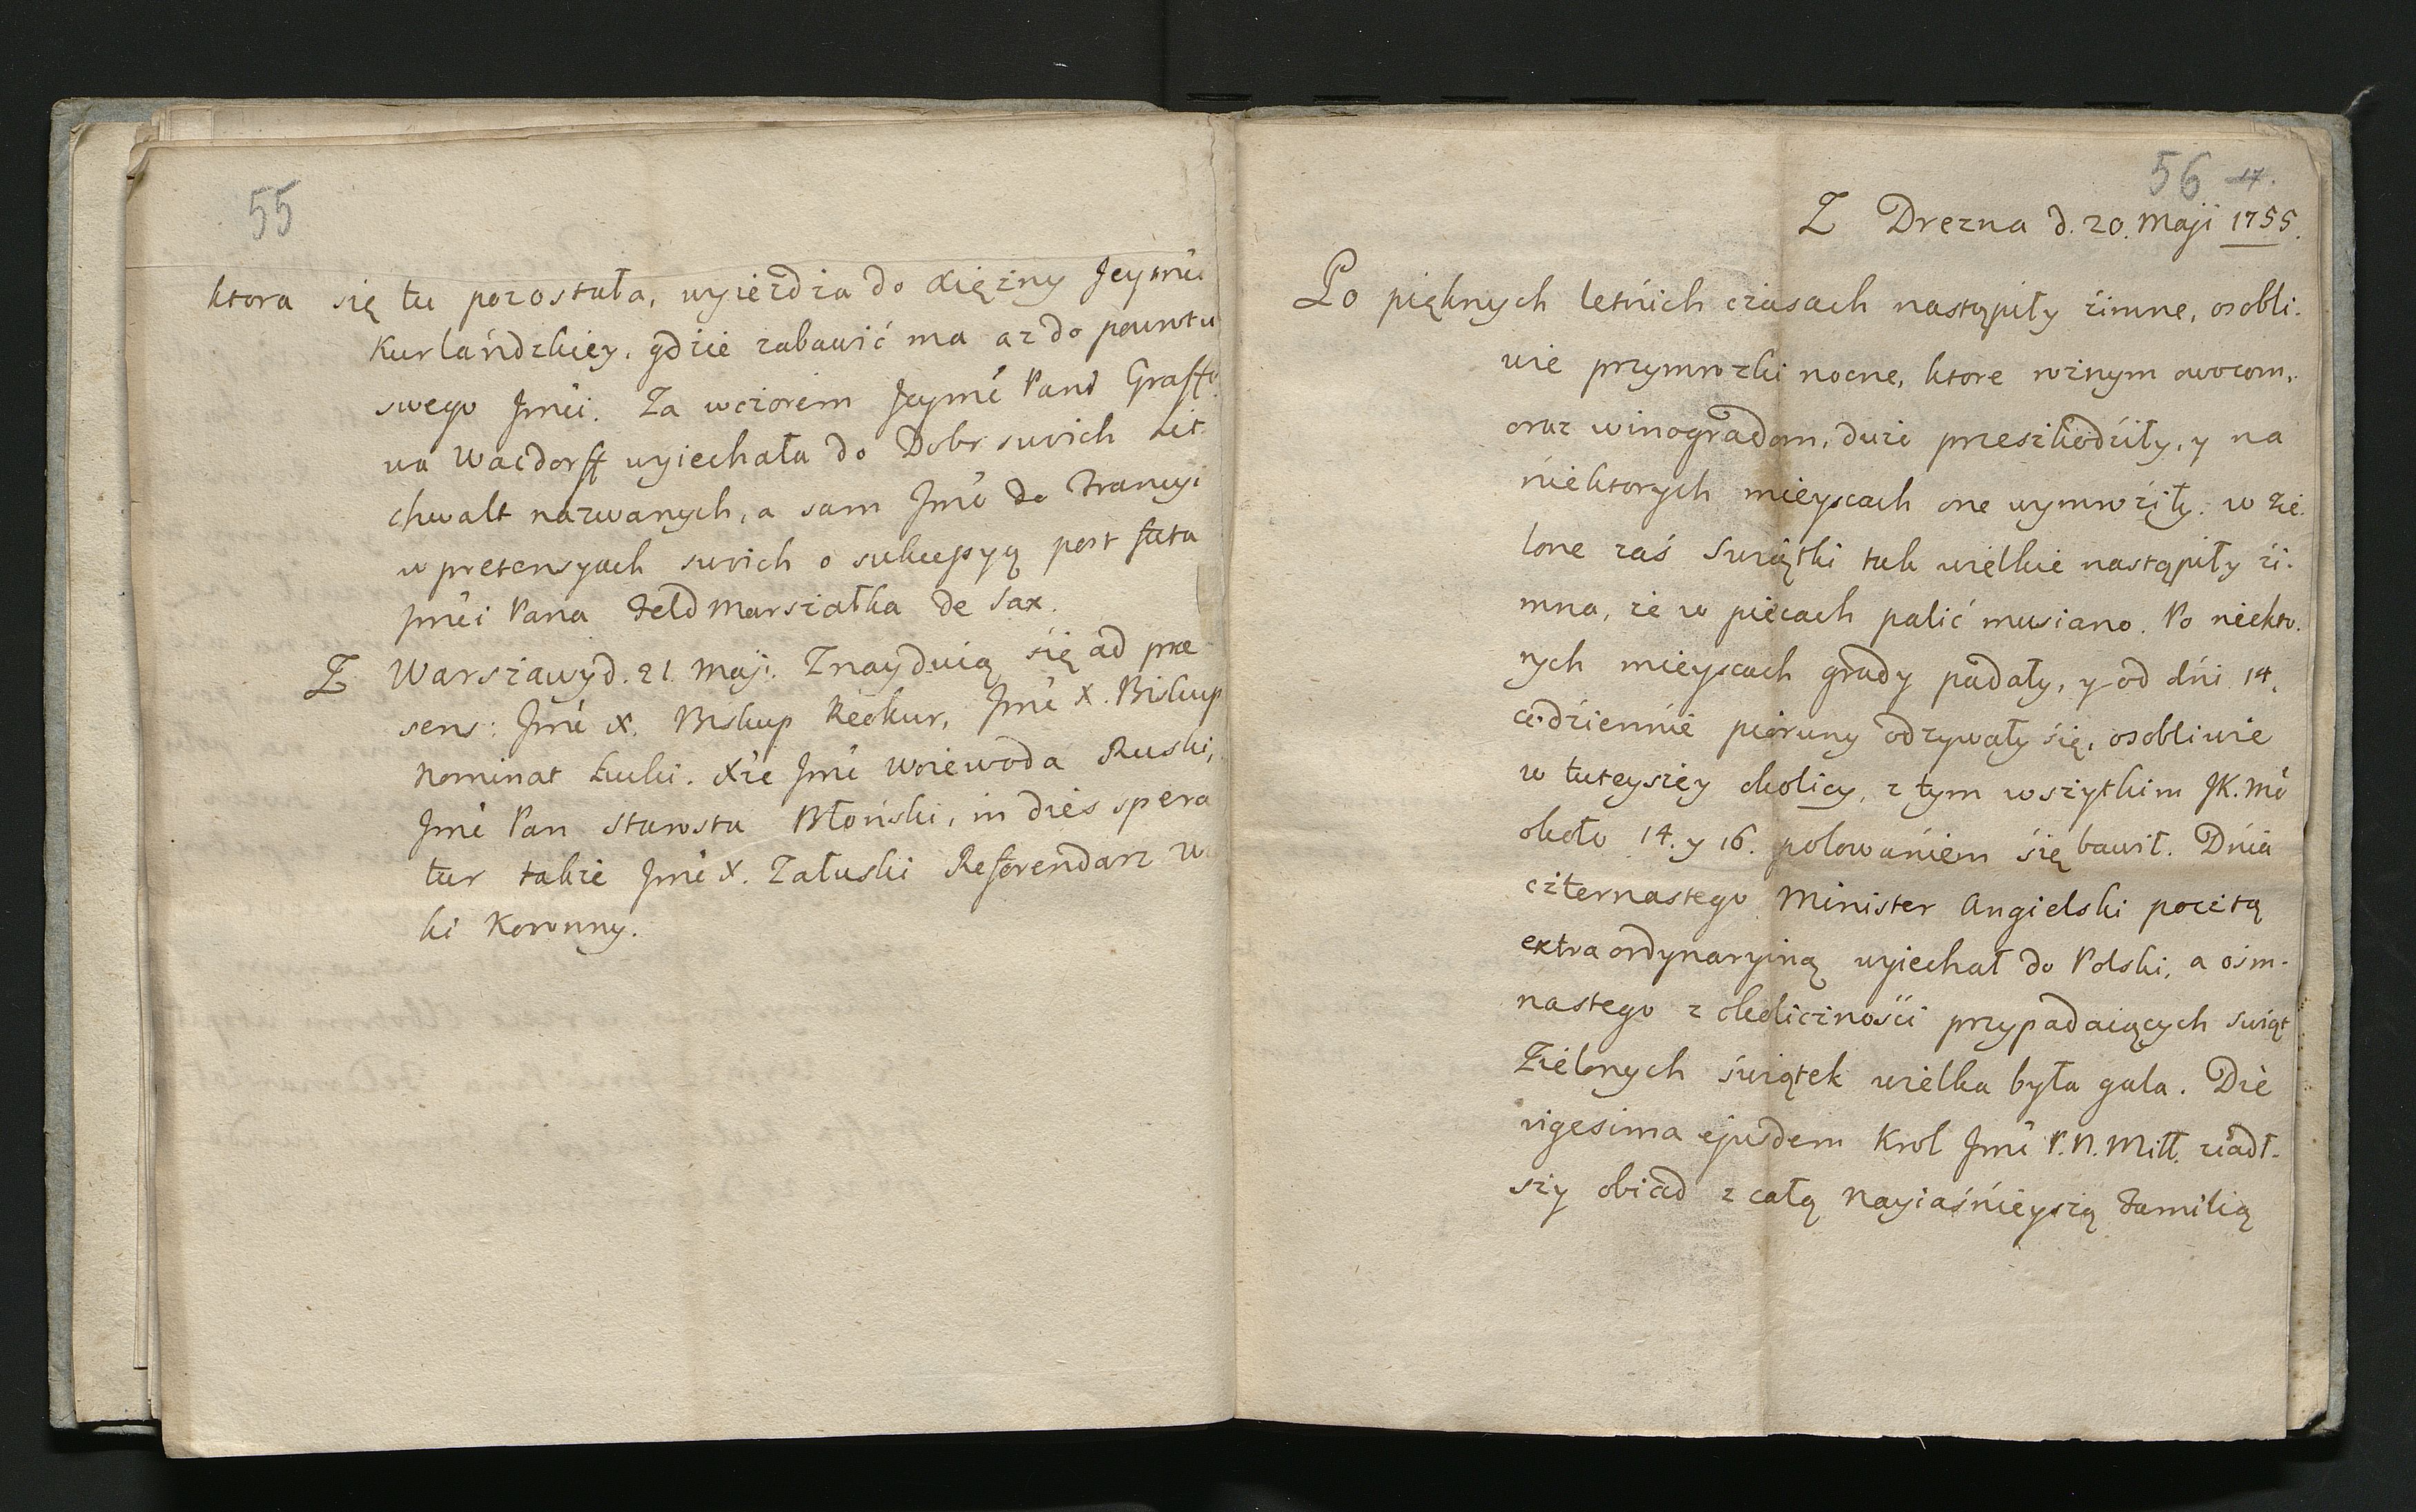 55
ktora się tu pozostała, wyieżdza do Xiężny Jeymći
Kurlańdzkiey, gdzie zabawić ma az do powrotu
swego Jmći. Za wczorem Jeymć Pani Graff
na Wacdorff wyiechała do Dobr swoich Lit
chwalt nazwanych, a sam Jmć do Francyi
w pretensyach swoich o sukcessyą post fata
Jmći Pana Feld Marszałka de Sax.
Z Warszawy d. 21 Maji. Znayduią się ad prae
sens: Jmć X. Biskup Reokur, Jmć X. Biskup
Nominat Łucki. Xże Jmć Woiewoda Ruski,
Jmć Pan Starosta Błoński, in dies spera
tur takze Jmć X. Załuski Referendarz W
ki Koronny.
56 17.
Z Drezna d. 20. Maji 1755.
Po pięknych letńich czasach nastąpiły źimne, osobli.
wie przymrozki nocne, ktore rożnym owocom,
oraz winogradom, duzo przeszkodźiły, y na
niektorych mieyscach one wymroźiły. w Zie.
lone zaś Swiątki tak wielkie nastąpiły źi.
mna, ze w piecach palić musiano. Po niekto.
rych mieyscach grady padały, y od dńi 14.
codźiennie pioruny odzywały się, osobliwie
w tuteyszey okolicy, z tym wszytkim JK. Mć
około 14. y 16. polowaniem się bawił. Dnia
czternastego Minister Angielski pocztą
extraordynaryiną wyiechał do Polski, a ośm-
nastego z okoliczności przypadaiących swiąt
Zielonych świątek wielka była gala. Die
vigesima ejusdem Krol Jmć P. N. Mił. ziadł-
szy obiad z całą Nayiaśnieyszą Familią